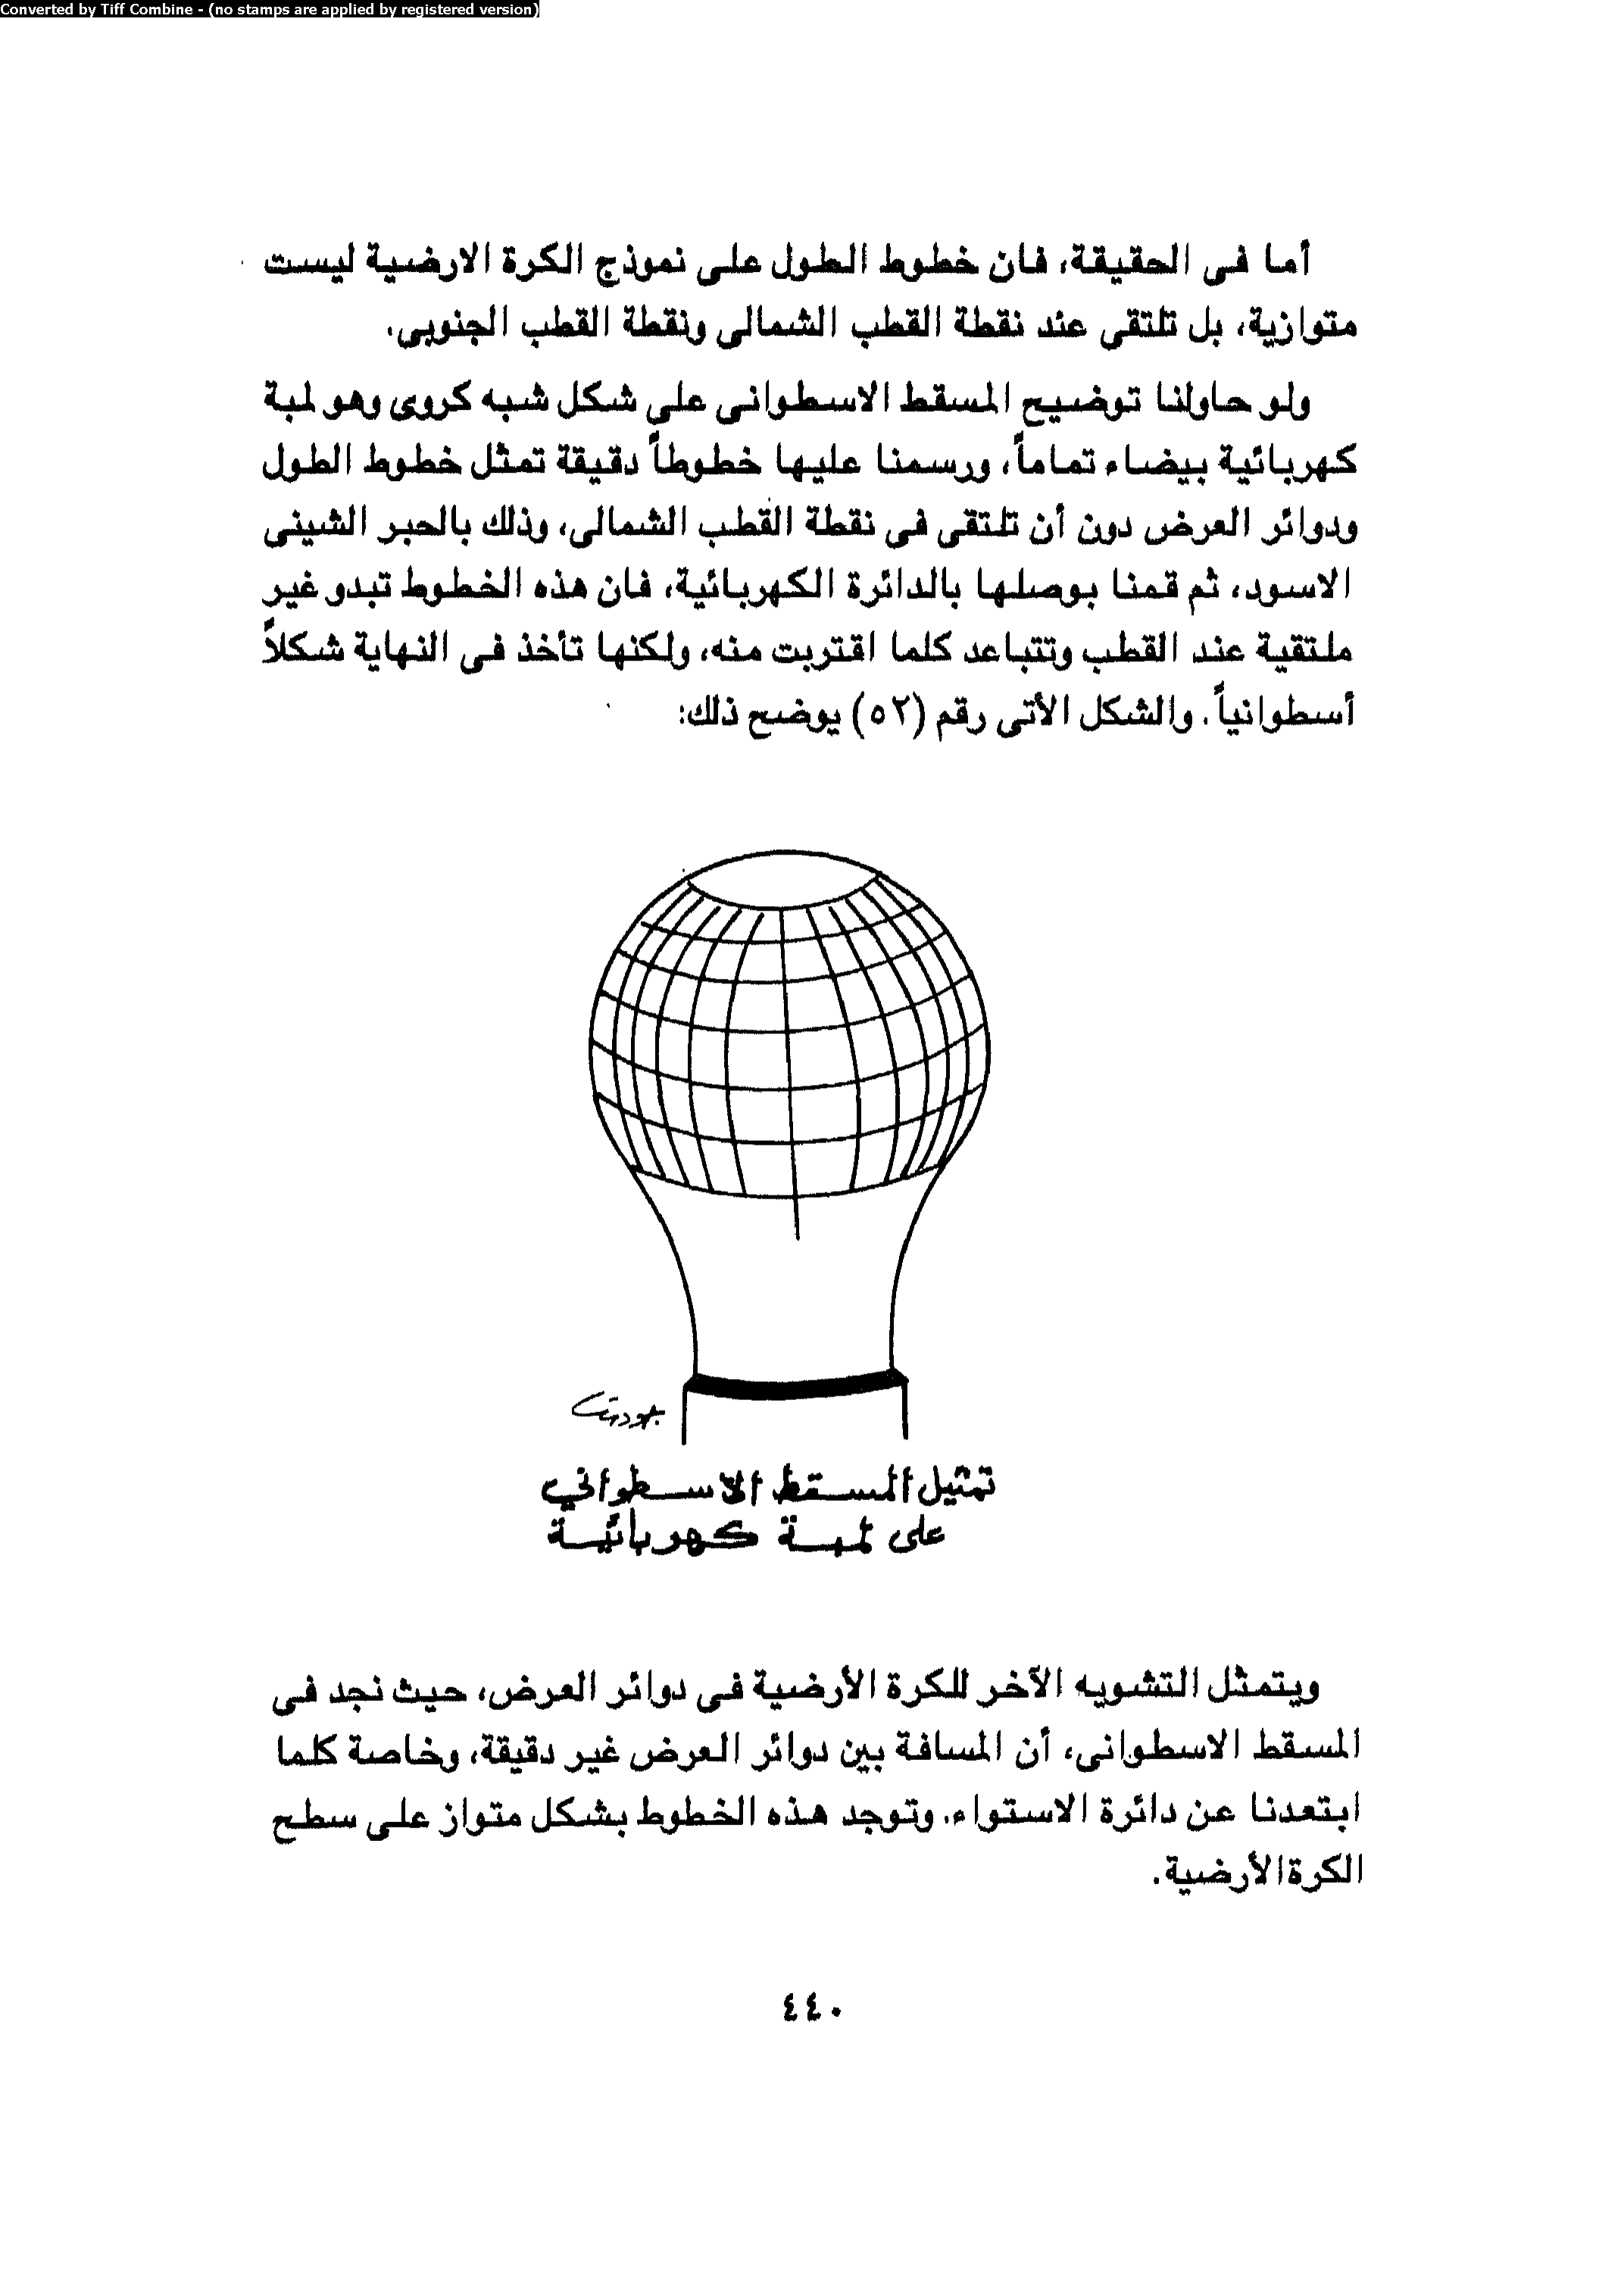 Converted by Tiff Combine - (no stamps are applied by registered version)
أما فى الحقيقة، فان خطوط الطول على نموذج الكرة الارضية ليست
متوازية، بل تلتقى عند نقطة القطب الشمالى ونقطة القطب الجنوبى.
ولو حاولنا توضيح المسقط الاسطوانى على شكل شبه كروى وهو لمبة
كهربائية بيضاء تماماً، ورسمنا عليها خطوطاً دقيقة تمثل خطوط الطول
ودوائر العرض دون أن تلتقى فى نقطة القطب الشمالى، وذلك بالحبر الشينى
الاسود، ثم قمنا بوصلها بالدائرة الكهربائية، فان هذه الخطوط تبدو غير
ملتقية عند القطب وتتباعد كلما اقتربت منه، ولكنها تأخذ فى النهاية شكلاً
أسطوانياً. والشكل الأتى رقم (٥٢) يوضح ذلك:
جودت
تمثيل المسقط الاسطواني
على لمبة كهربائية
ويتمثل التشويه الآخر للكرة الأرضية فى دوائر العرض، حيث نجد فى
المسقط الاسطوانى، أن المسافة بين دوائر العرض غير دقيقة، وخاصة كلما
ابتعدنا عن دائرة الاستواء. وتوجد هذه الخطوط بشكل متواز على سطح
الكرة الأرضية.
٤٤٠